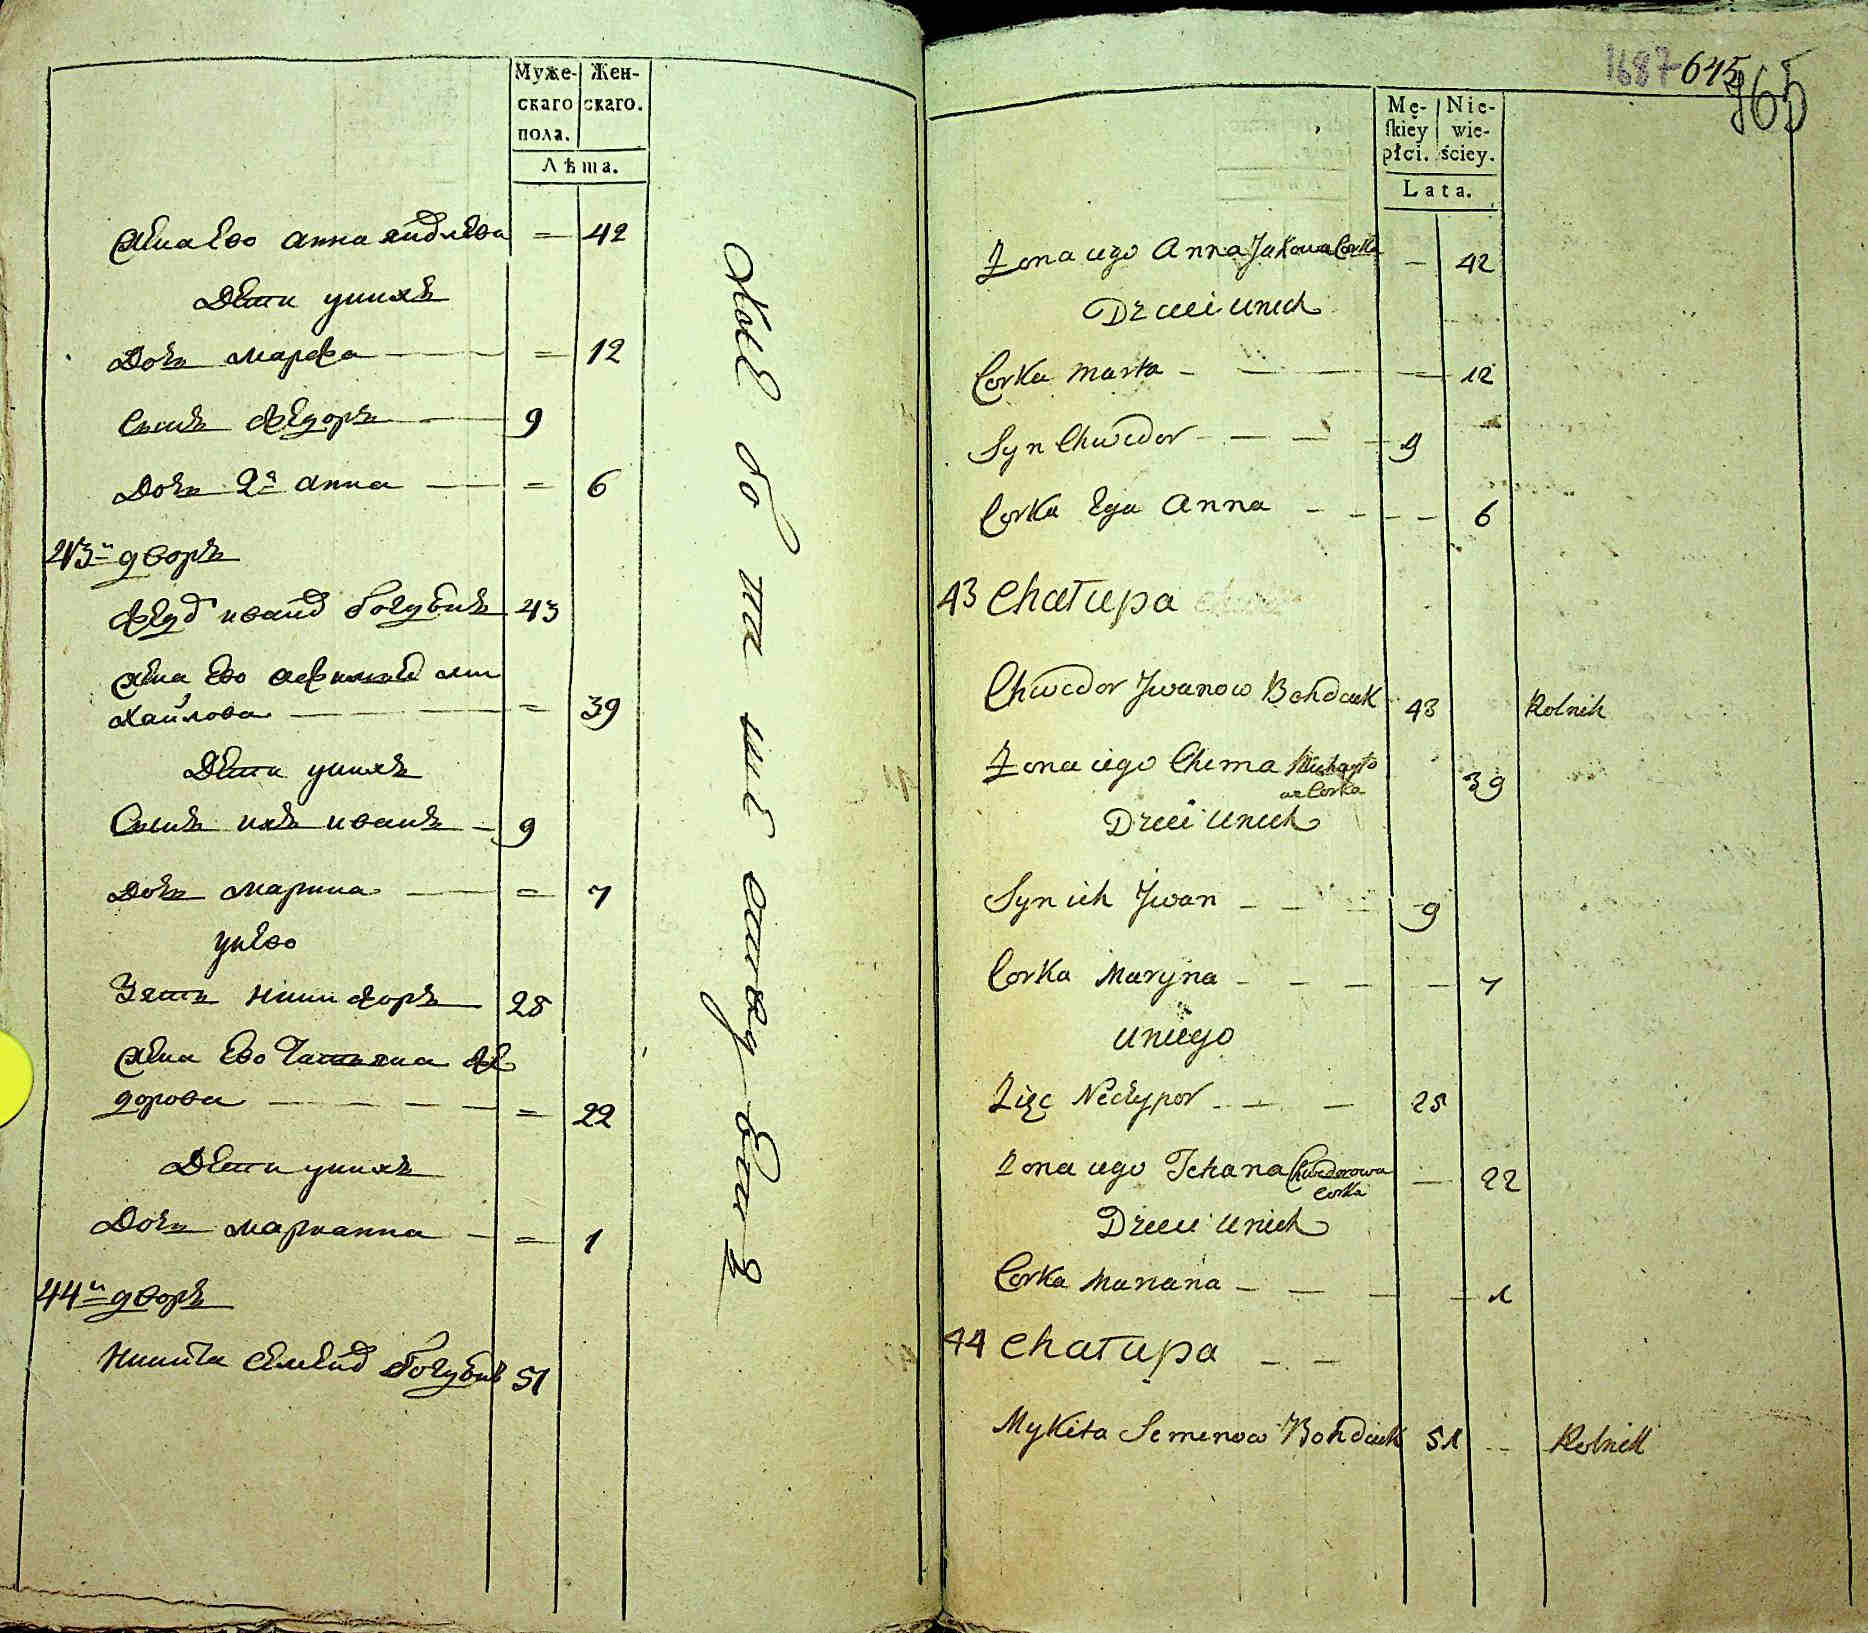 Муже-
скаго
пола.
Жен-
скаго.
Лѣта.
жена ево анна яковлева = 42
Дети унихъ
Дочь марфа = 12
Сынъ федоръ 9
Дочь 2я анна = 6
43й дворъ
Федор иванов 43
жена ево афимия ми
хайлова = 39
Дети унихъ
Сынъ ихъ иванъ 9
Дочь марина = 7
унево
Зять никифоръ 25
жена ево Татьяна фе
дорова = 22
Дети унихъ
Дочь марианна = 1
44й дворъ
Никита семенов 51
1687 645
965
Mę-
ſkiey
płci.
Nie-
wie-
ściey.
Lata.
Zona iego Anna Jakowa Corka 42
Dzieci unich
Corka Marta 12
Syn Chwedor 9
Corka 2ga Anna 6
43 Chałupa
Chwedor Jwanow Bohdiuk 43 Rolnik
Zona iego Chima Michayło
wa Corka 39
Dzieci unich
Syn ich Jwan 9
Corka Maryna 7
uniego
Zięc Neczypor 25
Zona iego Tetiana Chwedorowa
Corka 22
Dzieci unich
Corka Mariana 1
44 Chałupa
Mykita Semenow Bohdiuk 51 Rolnik